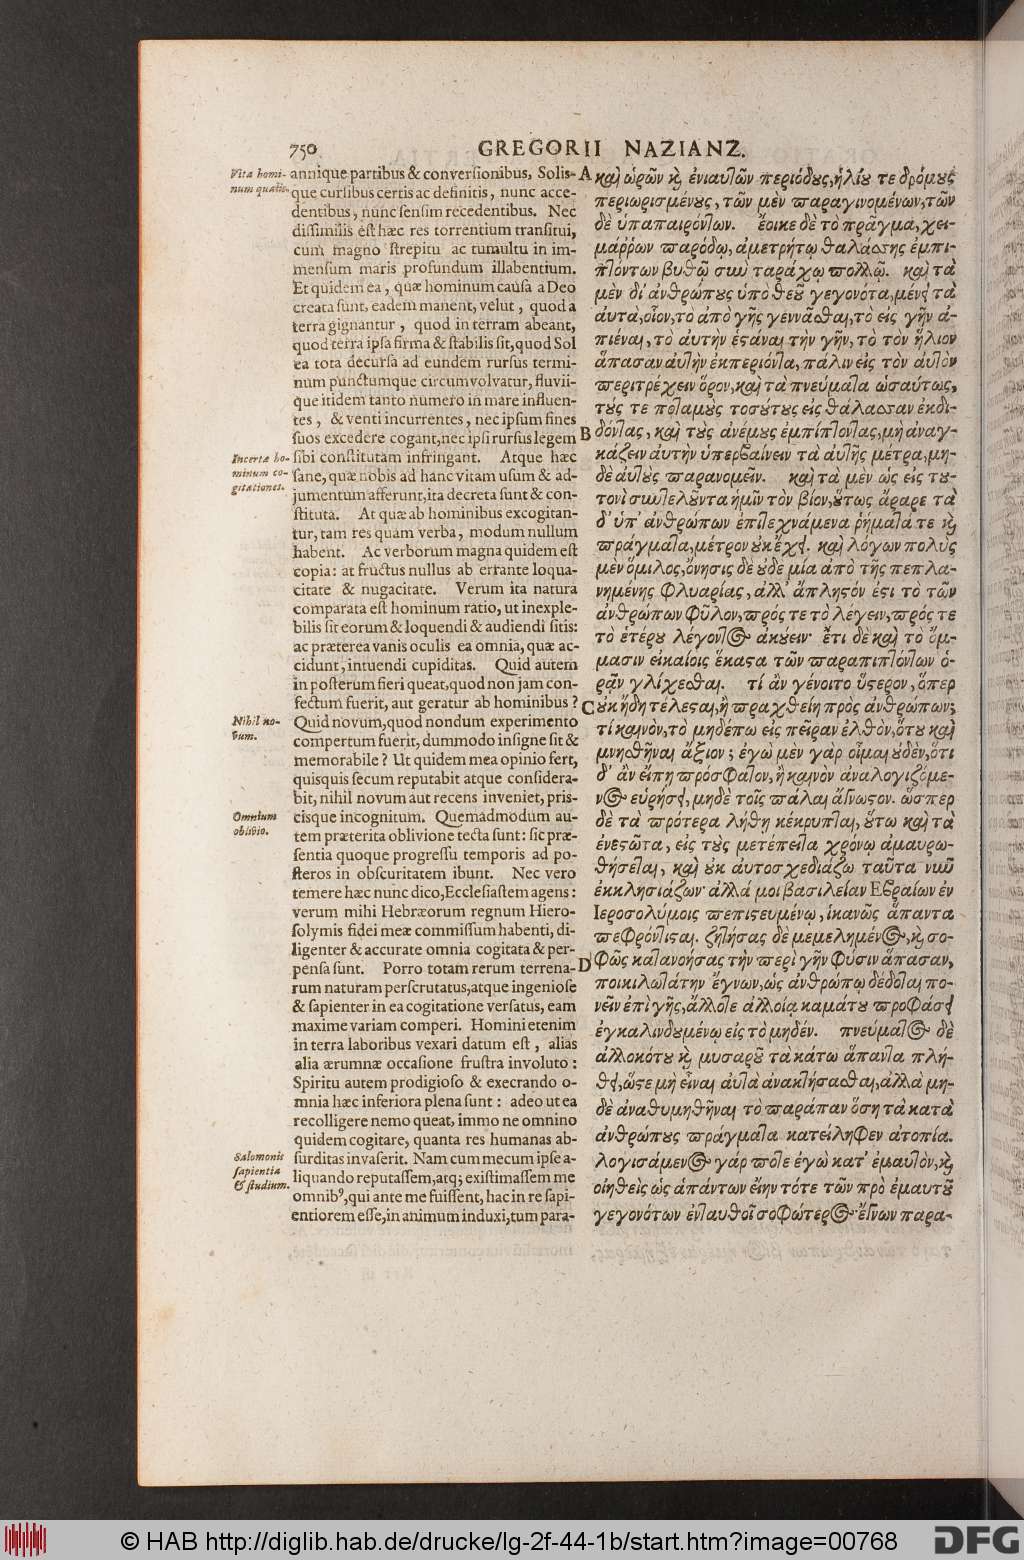 750
GREGORII NAZIANZ.
Vita homi-
num qualis.
Incertæ ho-
minum co-
gitationes.
Nihil no-
vum.
Omnium
oblivio.
Salomonis
sapientia
& studium.
annique partibus & conversionibus, Solis-
que cursibus certis ac definitis, nunc acce-
dentibus, nunc sensim recedentibus. Nec
dissimilis est hæc res torrentium transitui,
cum magno strepitu ac tumultu in im-
mensum maris profundum illabentium.
Et quidem ea, quæ hominum causa a Deo
creata sunt, eadem manent, velut, quod a
terra gignantur, quod in terram abeant,
quod terra ipsa firma & stabilis sit, quod Sol
ea tota decursa ad eundem rursus termi-
num punctumque circumvolvatur, fluvii-
que itidem tanto numero in mare influen-
tes, & venti incurrentes, nec ipsum fines
suos excedere cogant, nec ipsi rursus legem
sibi constitutam infringant. Atque hæc
sane, quæ nobis ad hanc vitam usum & ad-
jumentum afferunt, ita decreta sunt & con-
stituta. At quæ ab hominibus excogitan-
tur, tam res quam verba, modum nullum
habent. Ac verborum magna quidem est
copia: at fructus nullus ab errante loqua-
citate & nugacitate. Verum ita natura
comparata est hominum ratio, ut inexple-
bilis sit eorum & loquendi & audiendi sitis:
ac præterea vanis oculis ea omnia, quæ ac-
cidunt, intuendi cupiditas. Quid autem
in posterum fieri queat, quod non jam con-
fectum fuerit, aut geratur ab hominibus?
Quid novum, quod nondum experimento
compertum fuerit, dummodo insigne sit &
memorabile? Ut quidem mea opinio fert,
quisquis secum reputabit atque considera-
bit, nihil novum aut recens inveniet, pris-
cisque incognitum. Quemadmodum au-
tem præterita oblivione tecta sunt: sic præ-
sentia quoque progressu temporis ad po-
steros in obscuritatem ibunt. Nec vero
temere hæc nunc dico, Ecclesiastem agens:
verum mihi Hebræorum regnum Hiero-
solymis fidei meæ commissum habenti, di-
ligenter & accurate omnia cogitata & per-
pensa sunt. Porro totam rerum terrena-
rum naturam perscrutatus, atque ingeniose
& sapienter in ea cogitatione versatus, eam
maxime variam comperi. Homini etenim
in terra laboribus vexari datum est, alias
alia ærumnæ occasione frustra involuto:
Spiritu autem prodigioso & execrando o-
mnia hæc inferiora plena sunt: adeo ut ea
recolligere nemo queat, immo ne omnino
quidem cogitare, quanta res humanas ab-
surditas invaserit. Nam cum mecum ipse a-
liquando reputassem, atq; existimassem me
omnibꝰ, qui ante me fuissent, hac in re sapi-
entiorem esse, in animum induxi, tum para-
A
B
C
D
καὶ ὡρῶν καὶ ἐνιαυτῶν περιόδους, ἡλίου τε δρόμους
περιωρισμένους, τῶν μὲν παραγινομένων, τῶν
δὲ ὑπαπαιρόντων. ἔοικε δὲ τὸ πρᾶγμα, χει-
μάῤῥων παρόδῳ, ἀμετρήτῳ θαλάσσης ἐμπι-
πτόντων βυθῷ σὺν ταράχῳ πολλῷ. καὶ τὰ
μὲν δι' ἀνθρώπους ὑπὸ θεοῦ γεγονότα, μένει τὰ
αὐτὰ, οἷον, το ἀπὸ γῆς γεννᾶσθαι, τὸ εἰς γῆν ἀ-
πιέναι, τὸ αὐτὴν ἑστάναι τὴν γῆν, τὸ τὸν ἥλιον
ἅπασαν αὐτὴν ἐκπεριόντα, πάλιν εἰς τὸν αὐτὸν
περιτρέχειν ὅρον, καὶ τὰ πνεύματα ὡσαύτως,
τούς τε ποταμοὺς τοσούτους εἰς θάλασσαν ἐκδι-
δόντας, καὶ τοὺς ἀνέμους ἐμπίπτοντας, μὴ ἀναγ-
κάζειν αὐτὴν ὑπερβαίνειν τὰ αὐτῆς μετρα, μη-
δὲ αὐτοὺς παρανομεῖν. καὶ τὰ μὲν ὡς εἰς του-
τονὶ συντελοῦντα ἡμῖν τὸν βίον, οὕτως ἄραρε τὰ
δ' ὑπ' ἀνθρώπων ἐπιτεχνάμενα ῥήματά τε καὶ
πράγματα, μέτρον οὐκ ἔχει. καὶ λόγων πολὺς
μὲν ὅμιλος, ὄνησις δὲ οὐδε μία ἀπὸ τῆς πεπλα-
νημένης φλυαρίας, ἀλλ' ἄπληστόν ἐστι τὸ τῶν
ἀνθρώπων φῦλον, πρός τε τὸ λέγειν, πρός τε
τὸ ἑτέρου λέγοντος ἀκούειν· ἔτι δὲ καὶ τὸ ὄμ-
μασιν εἰκαίοις ἕκαστα τῶν παραπιπτόντων ὁ-
ρᾷν γλίχεσθαι. τί ἂν γένοιτο ὕστερον, ὅπερ
οὐκ ἤδη τέλεσται, ἢ πραχθείη πρὸς ἀνθρώπων;
τί καινὸν, τὸ μηδέπω εἰς πεῖραν ἐλθὸν, ὅτου καὶ
μνησθῆναι ἄξιον; ἐγὼ μὲν γὰρ οἶμαι οὐδὲν, ὅτι
δ' ἂν εἴπῃ πρόσφατον, ἢ καινὸν ἀναλογιζόμε-
νος εὑρήσει, μηδὲ τοῖς πάλαι ἄγνωστον. ὥσπερ
δὲ τὰ πρότερα λήθῃ κέκρυπται, οὕτω καὶ τὰ
ἐνεστῶτα, εἰς τοὺς μετέπειτα χρόνῳ ἀμαυρω-
θήσεται, καὶ οὐκ αὐτοσχεδιάζω ταῦτα νῦν
ἐκκλησιάζων· ἀλλά μοι βασιλείαν Εβραίων ἐν
Ιεροσολύμοις πεπιστευμένῳ, ἱκανῶς ἅπαντα
πεφρόντισται. ζητήσας δὲ μεμελημένος, καὶ σο-
φῶς κατανοήσας τὴν περὶ γῆν φύσιν ἅπασαν,
ποικιλωτάτην ἔγνων, ὡς ἀνθρώπῳ δέδοται πο-
νεῖν ἐπὶ γῆς, ἄλλοτε ἀλλοίᾳ καμάτου προφάσει
ἐγκαλινδουμένῳ εἰς τὸ μηδέν. πνεύματος δὲ
ἀλλοκότου καὶ μυσαροῦ τὰ κάτω ἅπαντα πλή-
θει, ὥστε μὴ εἶναι αὐτὰ ἀνακτήσασθαι, ἀλλὰ μη-
δὲ ἀναθυμηθῆναι τὸ παράπαν ὅση τὰ κατὰ
ἀνθρώπους πράγματα κατείληφεν ἀτοπία.
λογισάμενος γάρ ποτε ἐγὼ κατ' ἐμαυτὸν, καὶ
οἰηθεὶς ὡς ἁπάντων εἴην τότε τῶν πρὸ ἐμαυτοῦ
γεγονότων ἐνταυθοῖ σοφώτερος· ἔγνων παρα-
© HAB http://diglib.hab.de/drucke/lg-2f-44-1b/start.htm?image=00768
DFG